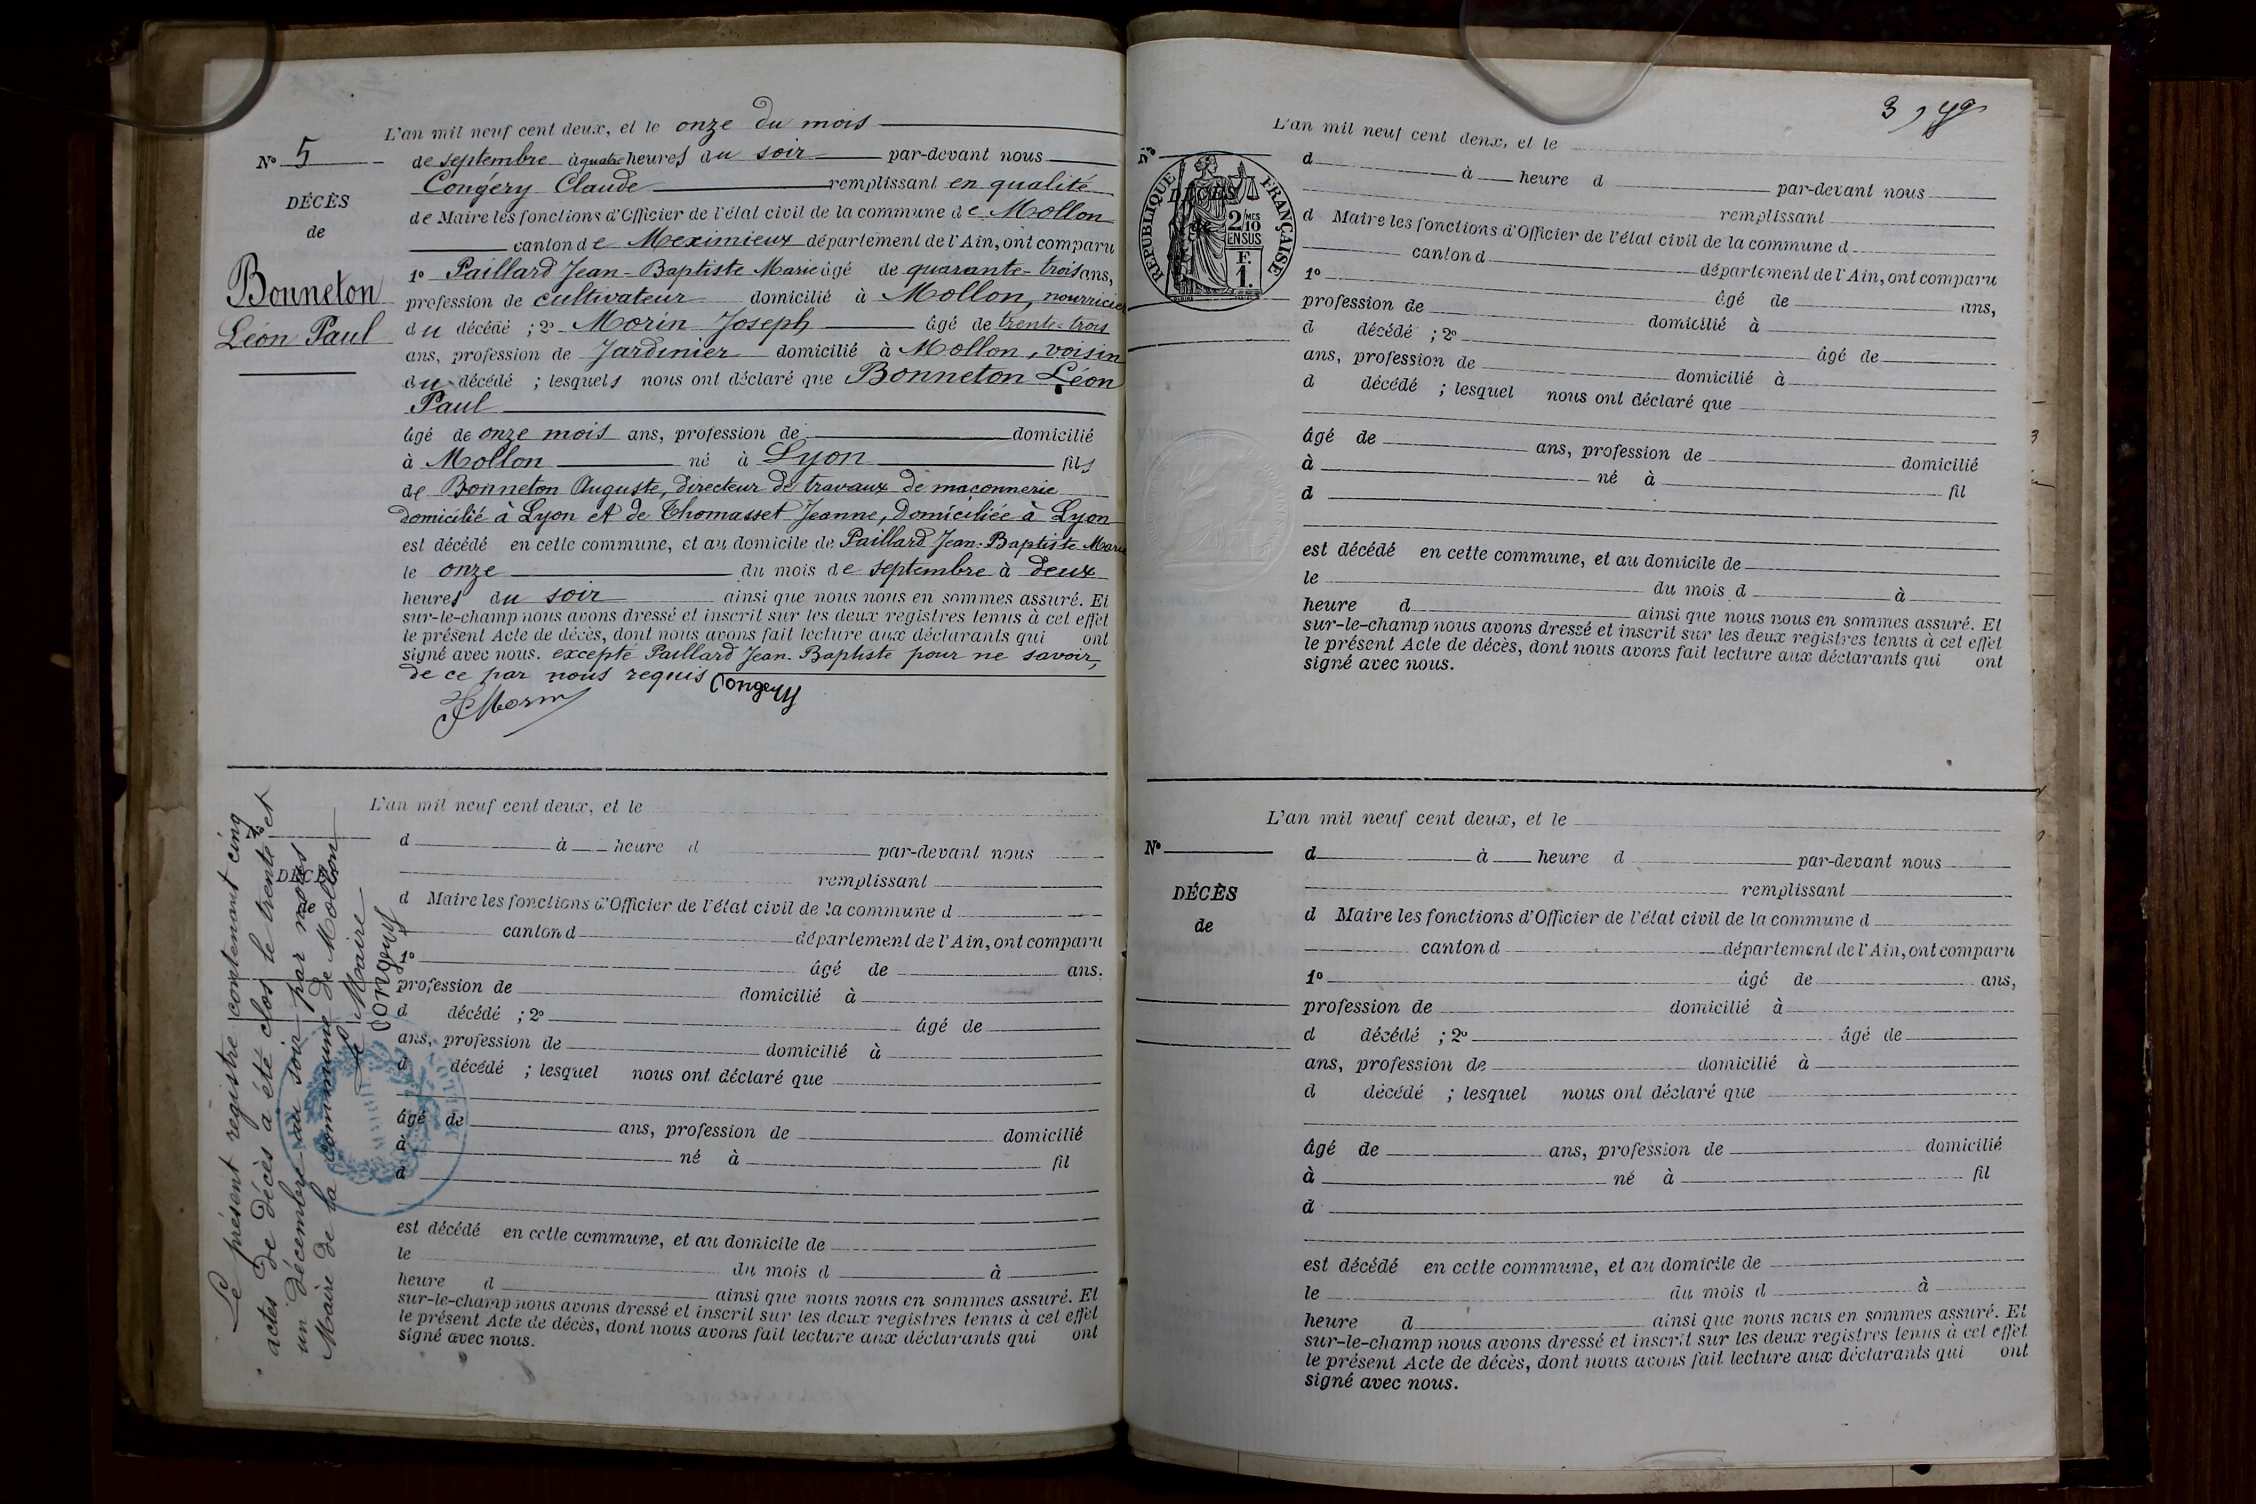 L'an mil neuf cent deux, et le onze du mois
N° 5
de septembre à quatre heures du soir par-devant nous
Congéry Claude remplissant en qualité
DÉCÈS
de Maire les fonctions d'Officier de l'état civil de la commune de Mollon
de
canton de Meximieux département de l'Ain, ont comparu
Bonneton
1° Paillard Jean-Baptiste Marie âgé de quarante-trois ans,
profession de cultivateur domicilié à Mollon, nourricier
Léon Paul
du décédé ; 2° Morin Joseph âgé de trente-trois
ans, profession de Jardinier domicilié à Mollon, voisin
du décédé ; lesquels nous ont déclaré que Bonneton Léon
Paul
âgé de onze mois ans, profession de domicilié
à Mollon né à Lyon fils
de Bonneton Auguste, directeur de travaux de maçonnerie
domicilié à Lyon et de Thomasset Jeanne, domiciliée à Lyon
est décédé en cette commune, et au domicile de Paillard Jean-Baptiste Marie
le onze du mois de septembre à deux
heures du soir ainsi que nous nous en sommes assuré. Et
sur-le-champ nous avons dressé et inscrit sur les deux registres tenus à cet effet
le présent Acte de décès, dont nous avons fait lecture aux déclarants qui ont
signé avec nous. excepté Paillard Jean-Baptiste pour ne savoir,
de ce par nous requis Congery
J Morin
L'an mil neuf cent deux, et le
N°
d à heure d par-devant nous
remplissant
DÉCÈS
de
d Maire les fonctions d'Officier de l'état civil de la commune d
canton d département de l'Ain, ont comparu
1° âgé de ans.
profession de domicilié à
d décédé ; 2° âgé de
ans, profession de domicilié à
d décédé ; lesquel nous ont déclaré que
âgé de ans, profession de domicilié
à né à fil
d
est décédé en cette commune, et au domicile de
le du mois d à
heure d ainsi que nous nous en sommes assuré. Et
sur-le-champ nous avons dressé et inscrit sur les deux registres tenus à cet effet
le présent Acte de décès, dont nous avons fait lecture aux déclarants qui ont
signé avec nous.
Le présent registre contenant cinq
actes de décès a été clos le trente et
un décembre au soir par nous
Maire de la commune de Mollon
Le Maire
Congery
3
L'an mil neuf cent deux, et le
N°
DÉCÈS
de
RÉPUBLIQUE FRANÇAISE
2 MES
10
EN SUS
F.
1.
d à heure d par-devant nous
remplissant
d Maire les fonctions d'Officier de l'état civil de la commune d
canton d département de l'Ain, ont comparu
1° âgé de ans,
profession de domicilié à
d décédé ; 2° âgé de
ans, profession de domicilié à
d décédé ; lesquel nous ont déclaré que
âgé de ans, profession de domicilié
à né à fil
d
est décédé en cette commune, et au domicile de
le du mois d à
heure d ainsi que nous nous en sommes assuré. Et
sur-le-champ nous avons dressé et inscrit sur les deux registres tenus à cet effet
le présent Acte de décès, dont nous avons fait lecture aux déclarants qui ont
signé avec nous.
L'an mil neuf cent deux, et le
N°
d à heure d par-devant nous
remplissant
DÉCÈS
de
d Maire les fonctions d'Officier de l'état civil de la commune d
canton d département de l'Ain, ont comparu
1° âgé de ans,
profession de domicilié à
d décédé ; 2° âgé de
ans, profession de domicilié à
d décédé ; lesquel nous ont déclaré que
âgé de ans, profession de domicilié
à né à fil
d
est décédé en cette commune, et au domicile de
le du mois d à
heure d ainsi que nous nous en sommes assuré. Et
sur-le-champ nous avons dressé et inscrit sur les deux registres tenus à cet effet
le présent Acte de décès, dont nous avons fait lecture aux déclarants qui ont
signé avec nous.